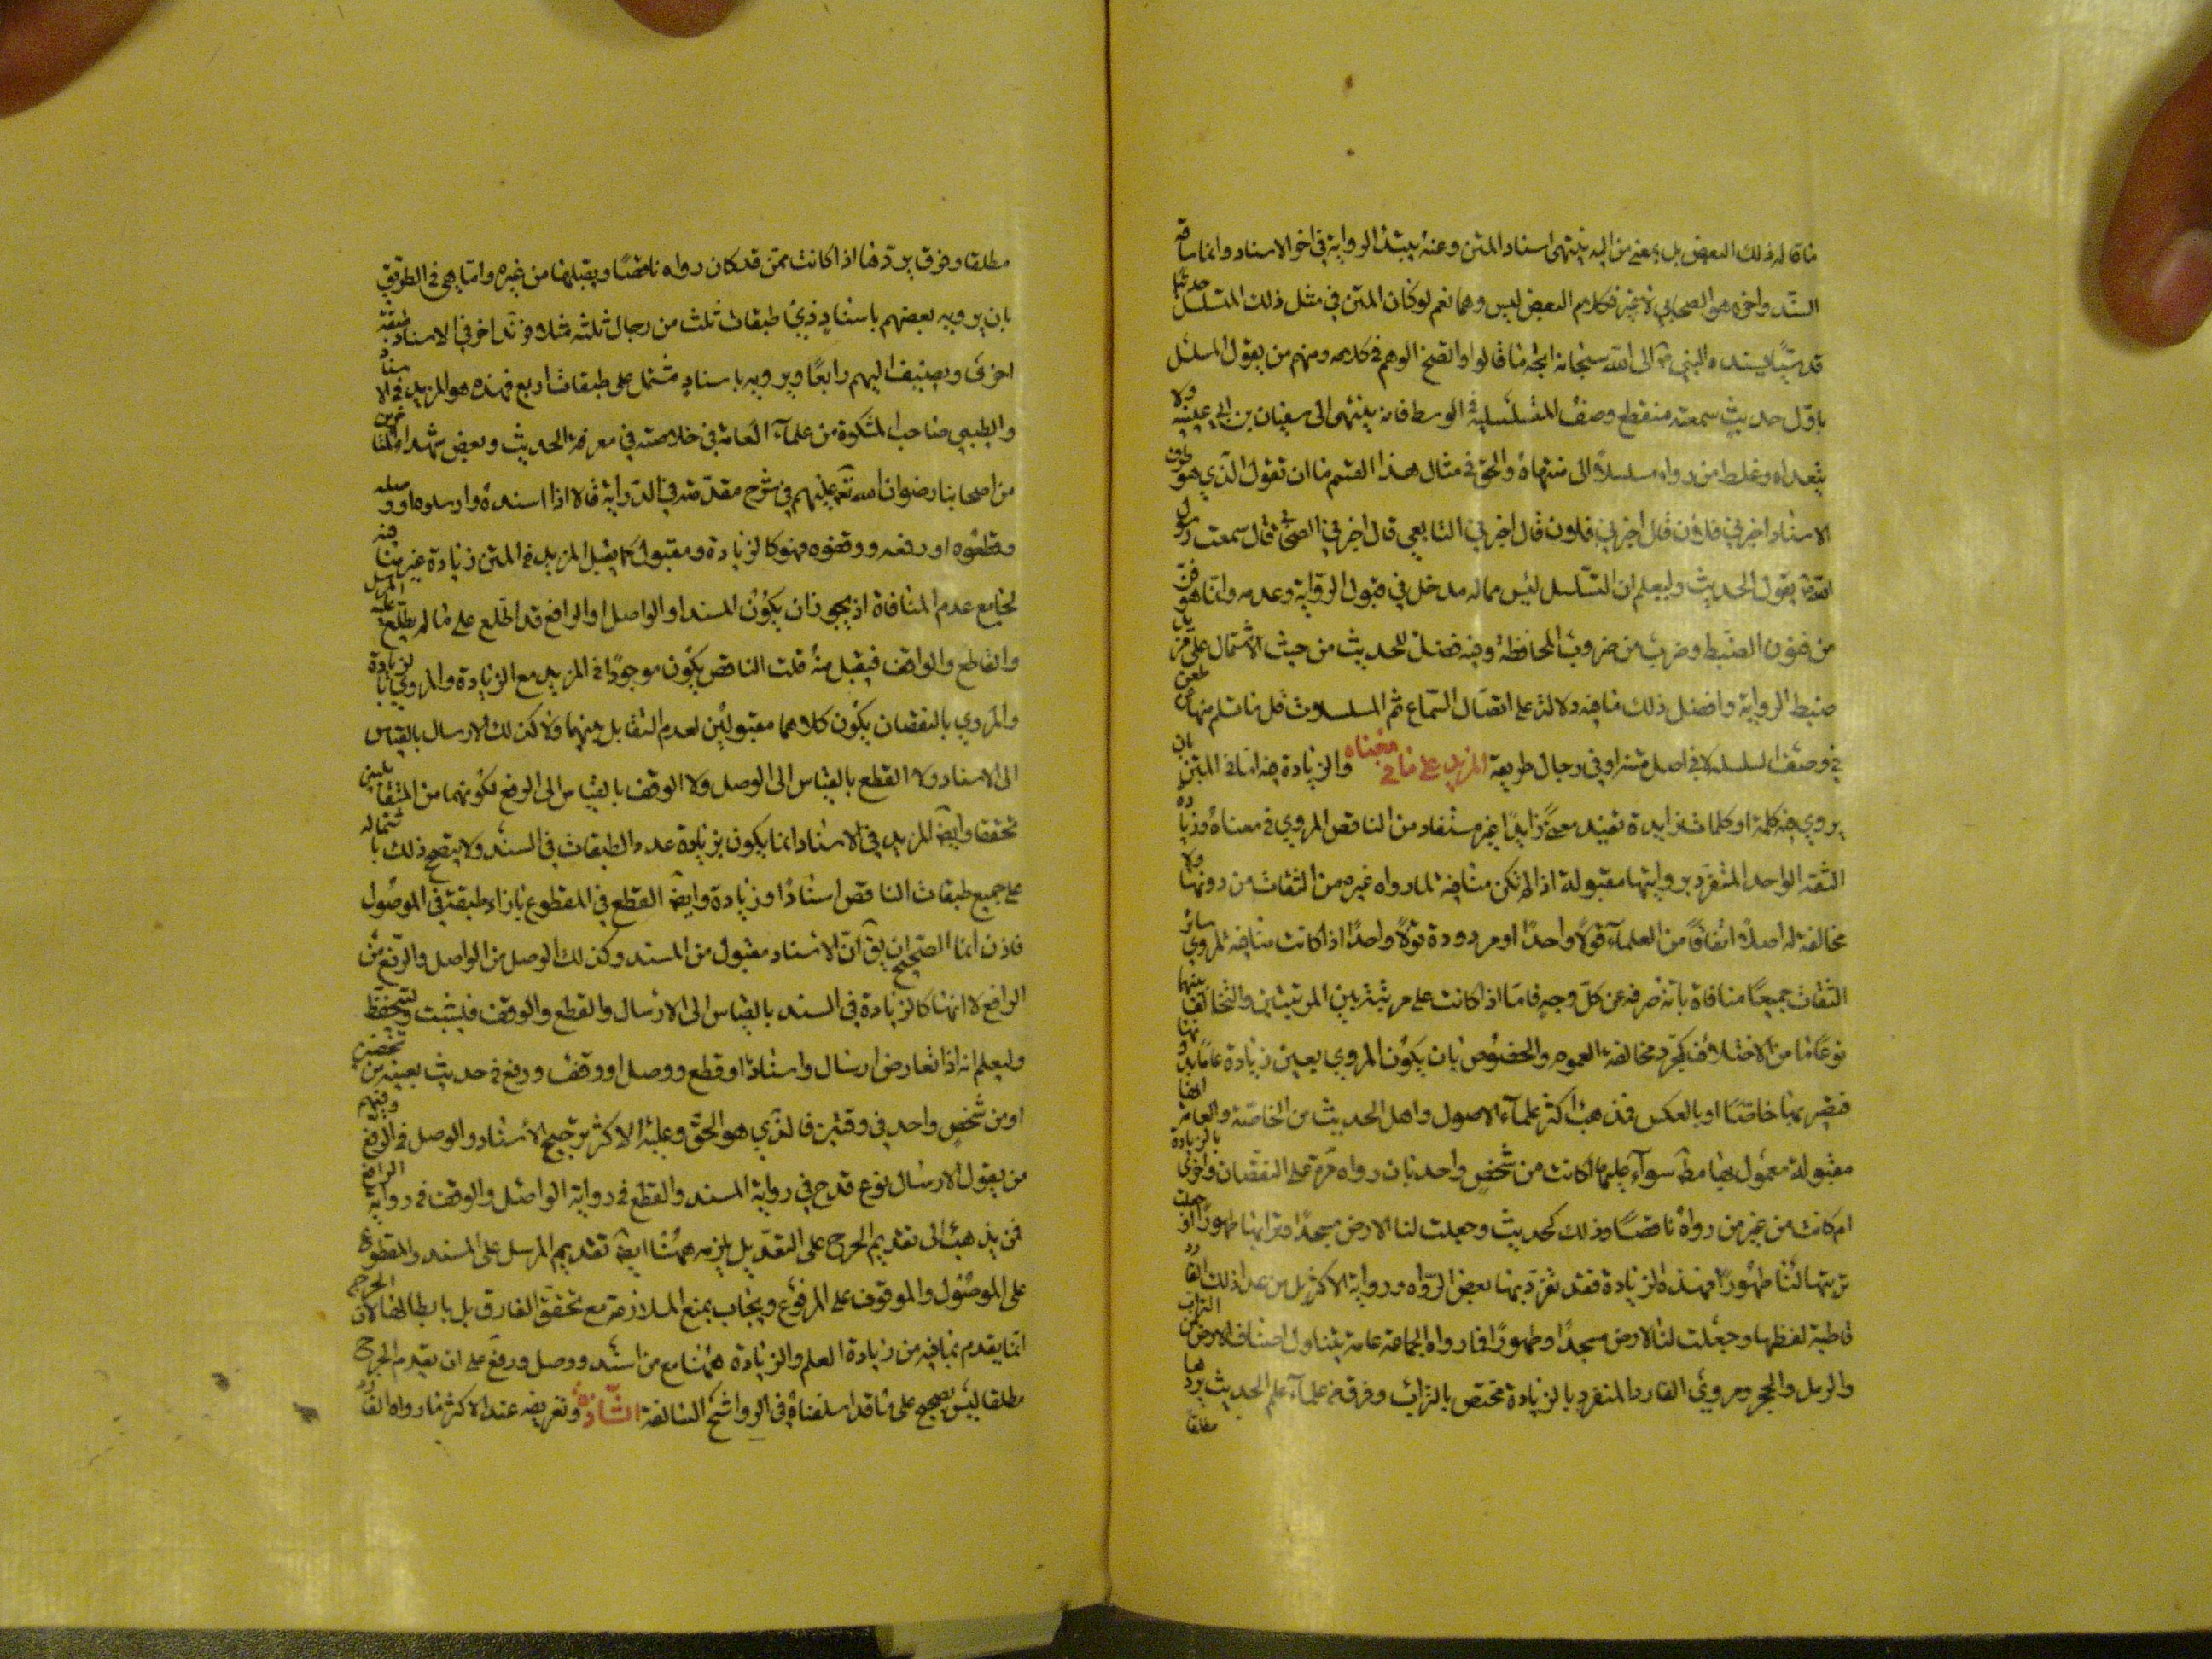 ما قاله ذلك البعض بل بمعنى من اليه ينتهى اسناد المتن وعنه يبتدأ الرواية في اخر الاسناد وانما ساقه
السند واخره هو الصحابي لا غير فكلام البعض ليس وهما نعم لو كان المتن في مثل ذلك المتسلسل حديثا
قدسيا يسنده النبي ص الى الله سبحانه اتجه ما قالوا واتضح الوهم في كلامه ومنهم من يقول المسلسل
باول حديث سمعته منقطع وصف المتسلسلية في الوسط فانه ينتهى الى سفيان بن ابي عيينه ولا
يتعداه وغلط من رواه مسلسلا الى منتهاه والحق في مثال هذا القسم ما ان تقول الذي هو طرف
الاسناد اخبرني فلان قال اخبرني فلان قال اخبرني التابعي قال اخبرني الصحابي قال سمعت رسول
الله ص يقول الحديث وليعلم ان التسلسل ليس مما له مدخل في قبول الرواية وعدمه وانما هو فن
من فنون الضبط وضرب من ضروب المحافظة وفيه فضل للحديث من حيث الاشتمال على مزيد
ضبط الرواية وافضل ذلك ما فيه دلالة على اتصال السماع ثم المسلسلات قل ما تسلم منها عن طعن
في وصف السلسلة لا في اصل متنه او في رجال طريقه المزيد على ما في معناه والزيادة فيه اما في المتن بان
يروى فيه كلمة او كلمات زايدة تفيد معنى زايدا غير مستفاد من الناقص المروي في معناه وزيادة
الثقة الواحد المتفرد بروايتها مقبولة اذا لم تكن منافيه لما رواه غيره من الثقات من دونها ولا
مخالفة له اصلا اتفاقا من العلماء قولا واحدا او مردودة قولا واحدا اذا كانت منافيه لمروي سائر
الثقات جميعا منافاة باتة صرفه عن كل وجه فاما اذا كانت على مرتبة بين المرتبتين والتخالف بينهما
نوعا ما من الاختلاف كمجرد مخالفة العموم والخصوص بان يكون المروي بعين زيادة عاما بدونها
فيصير بها خاصا او بالعكس فمذهب اكثر علماء الاصول واهل الحديث من الخاصة والعامة انها
مقبولة معمول بها مط سواء عليها اكانت من شخص واحد بان رواه مرة على النقصان واخرى بالزيادة
ام كانت من غير من رواه ناقصا وذلك كحديث وجعلت لنا الارض مسجدا وترابها طهورا او جعلت
تربتها لنا طهورا فهذه الزيادة فقد تفرد بها بعض الرواه ورواية الاكثر بل من عدا ذلك الفارد
قاطبة لفظها وجعلت لنا الارض مسجدا وطهورا فما رواه الجماعه عامة يتناول اصناف الارض من التراب
والرمل والحجر ومروي الفارد المتفرد بالزيادة مختص بالتراب وفرقة من علماء علم الحديث يردها
مطلقا
مطلقا وفرق يردها اذا كانت ممن قد كان رواه ناقصا ويقبلها من غيره واما هي في الطريق
بان يرويه بعضهم باسناد ذي طبقات ثلث من رجال ثلثه مثلا فزيد اخر في الاسناد طبقة
اخرى ويضيف اليهم رابعا ويرويه باسناد مشتمل على طبقات اربع فهذه هو المزيد في الاسناد
والطيبي صاحب المشكوة من علماء العامة في خلاصته في معرفة الحديث وبعض شهداء المتاخرين
من اصحابنا رضوان الله تعـ عليهم في شرح مقدمته في الدراية قالا اذا اسنده وارسلوه او وصله
وقطعوه او رفعه ووقفوه فهو كالزيادة ومقبول كما يقبل المزيد في المتن زيادة غير منافيه
لجامع عدم المنافاة اذ يجوز ان يكون المسند او الواصل او الرافع قد اطلع على ما لم يطلع عليه المرسل
والقاطع والواقف فيقبل منه قلت الناقص يكون موجودا في المزيد مع الزيادة والمروي بالزيادة
والمروي بالنقصان يكون كلاهما مقبولين لعدم التقابل بينهما ولا كذلك الارسال بالقياس
الى الاسناد ولا القطع بالقياس الى الوصل ولا الوقف بالقياس الى الرفع لكونهما من المتقابلين
تحققا وايضا المزيد في الاسناد انما يكون بزيادة عدد الطبقات في السند ولا يتضح ذلك باشتماله
على جميع طبقات الناقص اسنادا وزيادة وايضا القطع في المقطوع بازاء طبقة في الموصول
فاذن انما الصحيح ان يق ان الاسناد مقبول من المسند وكذلك الوصل من الواصل والرفع من
الرافع لا انها كالزيادة في السند بالقياس الى الارسال والقطع والوقف فليتثبت وليتحفظ
وليعلم انه اذا تعارض ارسال واسناد او قطع ووصل او وقف ورفع في حديث بعينه من شخصين
او من شخص واحد في وقتين فالذي هو الحق وعليه الاكثر ترجيح الاسناد والوصل في الرفع وفيهم
من يقول الارسال نوع قدح في رواية المسند والقطع في رواية الواصل والوقف في رواية الرافع
فمن يذهب الى تقديم الجرح على التعديل يلزمه هيهنا ايضا تقديم المرسل على المسند والمقطوع
على الموصول والموقوف على المرفوع ويجاب بمنع الملازمة مع تحقق الفارق بل بابطالها لان الجرح
انما يقدم لما فيه من زيادة العلم والزيادة ههنا مع من اسند ووصل ورفع على ان يقدم الجرح
مطلقا ليس بصحيح على ما قد اسلفناه في الرواشح السالفة الشاذ وتعريفه عند الاكثر ما رواه الفارد